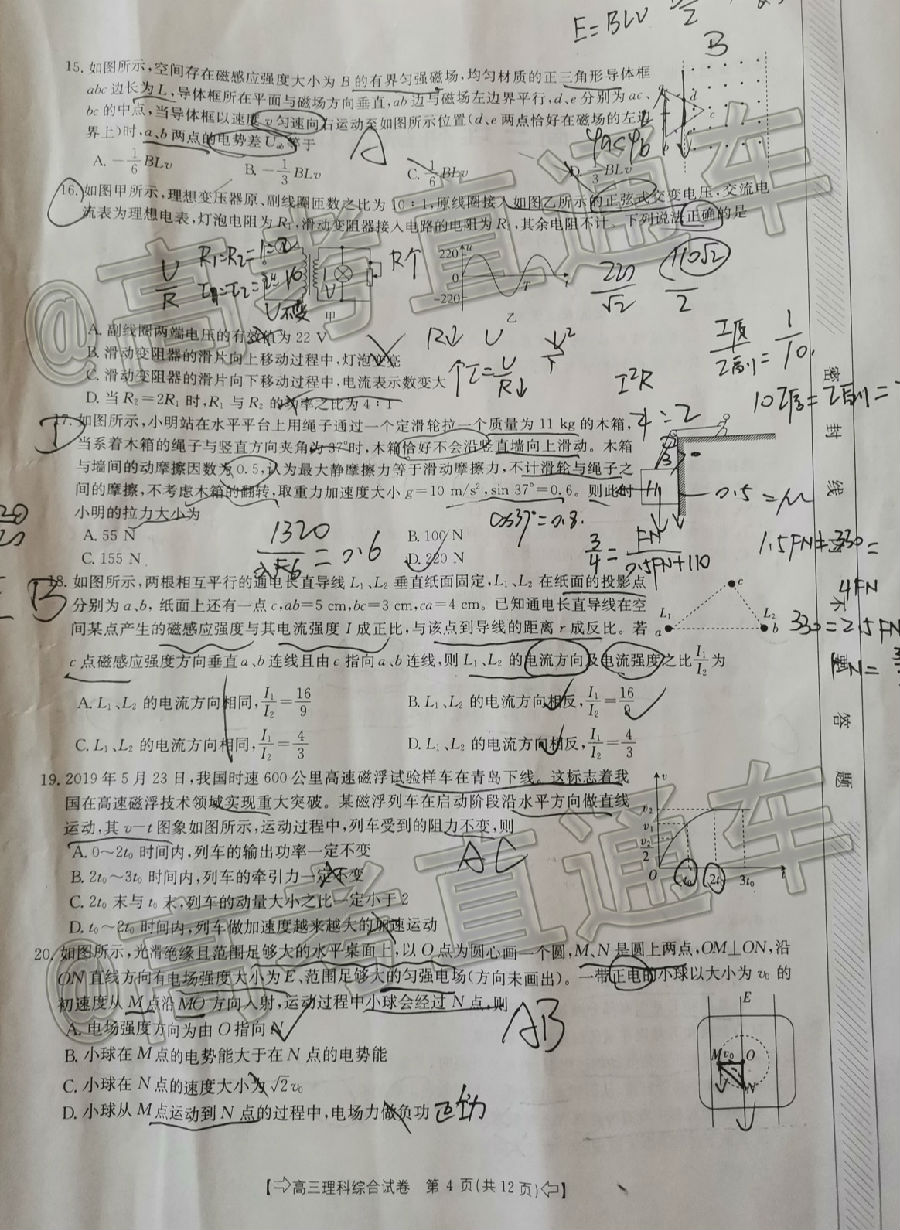 E=BLV
15. 如图所示,空间存在磁感应强度大小为 B 的有界匀强磁场,均匀材质的正三角形导体框
abc 边长为 L,导体框所在平面与磁场方向垂直,ab 边与磁场左边界平行,d、e 分别为 ac、
bc 的中点,当导体框以速度 v 匀速向右运动至如图所示位置(d、e 两点恰好在磁场的左边
界上)时,a、b 两点的电势差 Uab 等于
B
A
φa<φb
A. −1/6 BLv
B. −1/3 BLv
C. 1/6 BLv
D. 1/3 BLv
16. 如图甲所示,理想变压器原、副线圈匝数之比为 10:1,原线圈接入如图乙所示的正弦式交变电压,交流电
流表为理想电表,灯泡电阻为 R1,滑动变阻器接入电路的电阻为 R2,其余电阻不计。下列说法正确的是
U/R
U不变
甲
R个
220
0
−220
u
乙
220/√2
110√2/2
A. 副线圈两端电压的有效值为 22 V
B. 滑动变阻器的滑片向上移动过程中,灯泡变亮
C. 滑动变阻器的滑片向下移动过程中,电流表示数变大
D. 当 R2=2R1 时,R1 与 R2 的功率之比为 4:1
R↓ U
↑I=U/R↓
I²R
I原/I副=1/10
17. 如图所示,小明站在水平平台上用绳子通过一个定滑轮拉一个质量为 11 kg 的木箱,
当系着木箱的绳子与竖直方向夹角为 37°时,木箱恰好不会沿竖直墙向上滑动。木箱
与墙间的动摩擦因数为 0.5,认为最大静摩擦力等于滑动摩擦力,不计滑轮与绳子之
间的摩擦,不考虑木箱的翻转,取重力加速度大小 g=10 m/s², sin 37°=0.6。则此时
小明的拉力大小为
D
0.5=μ
cos37°=0.8
A. 55 N
B. 100 N
C. 155 N
D. 220 N
3/4=FN/0.5FN+110
18. 如图所示,两根相互平行的通电长直导线 L1、L2 垂直纸面固定,L1、L2 在纸面的投影点
分别为 a、b, 纸面上还有一点 c,ab=5 cm,bc=3 cm,ca=4 cm。已知通电长直导线在空
间某点产生的磁感应强度与其电流强度 I 成正比,与该点到导线的距离 r 成反比。若
c 点磁感应强度方向垂直 a、b 连线且由 c 指向 a、b 连线,则 L1、L2 的电流方向及电流强度之比 I1/I2 为
B
c
L1
a
L2
b
A. L1、L2 的电流方向相同, I1/I2=16/9
B. L1、L2 的电流方向相反, I1/I2=16/9
C. L1、L2 的电流方向相同, I1/I2=4/3
D. L1、L2 的电流方向相反, I1/I2=4/3
19. 2019 年 5 月 23 日,我国时速 600 公里高速磁浮试验样车在青岛下线。这标志着我
国在高速磁浮技术领域实现重大突破。某磁浮列车在启动阶段沿水平方向做直线
运动,其 v−t 图象如图所示,运动过程中,列车受到的阻力不变,则
A. 0~2t0 时间内,列车的输出功率一定不变
B. 2t0~3t0 时间内,列车的牵引力一定不变
C. 2t0 末与 t0 末,列车的动量大小之比一定小于 2
D. t0~2t0 时间内,列车做加速度越来越大的加速运动
AC
v
v2
v1
v2/2
O
3t0
20. 如图所示,光滑绝缘且范围足够大的水平桌面上,以 O 点为圆心画一个圆,M、N 是圆上两点,OM⊥ON,沿
ON 直线方向有电场强度大小为 E、范围足够大的匀强电场(方向未画出)。一带正电的小球以大小为 v0 的
初速度从 M 点沿 MO 方向入射,运动过程中小球会经过 N 点,则
A. 电场强度方向为由 O 指向 N
B. 小球在 M 点的电势能大于在 N 点的电势能
C. 小球在 N 点的速度大小为 √2 v0
D. 小球从 M 点运动到 N 点的过程中,电场力做负功
AB
E
M
v0
O
N
【⇨高三理科综合试卷 第 4 页(共 12 页)⇦】
密
封
线
不
要
答
题
@高考直通车
@高考直通车